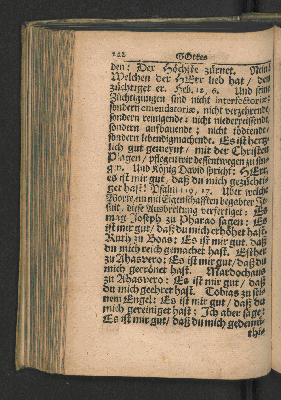 122 GOttes
den: Der Höchste zürnet. Nein!
Welchen der HErr lieb hat / den
züchtiget er. Heb. 12, 6. Und seine
Züchtigungen sind nicht interfectoriæ
sondern emendatoriæ, nicht verzehrende
sondern reinigende: nicht niederreissende
sondern aufbauende; nicht tödtende
sondern lebendigmachende. Es ist hertz-
lich gut gemeynt / mit der Christen
Plagen / pflegen wir dessentwegen zu sin-
gen. Und König David spricht: HErr,
es ist mir gut, daß du mich gezüchti-
get hast! Psalm 119, 17. Uber welche
Worte, ein mit Eigenschafften begabter Je-
suit, diese Ausbreitung verfertiget: Es
mag Joseph zu Pharao sagen: Es
ist mir gut / daß du mich erhöhet hast:
Ruth zu Boas: Es ist mir gut, daß
du mich reich gemachet hast. Esther
zu Ahasvero: Es ist mir gut / daß du
mich gecrönet hast. Mardochæus
zu Ahasvero: Es ist mir gut / daß
du mich geehret hast. Tobias zu sei-
nem Engel: Es ist mir gut / daß du
mich gereiniget hast: Ich aber sage:
Es ist mir gut / daß du mich gedemü-
thi-